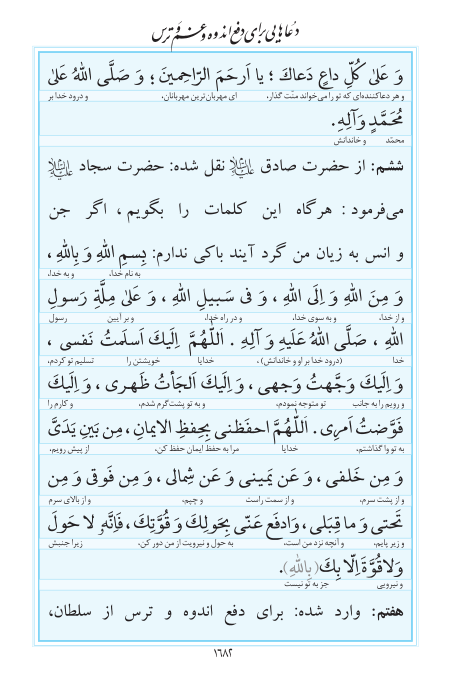 دعاهایی برای دفع اندوه و غم و ترس
وَ عَلىٰ كُلِّ داعٍ دَعاكَ ؛ يا اَرحَمَ الرّاحِمينَ ؛ وَ صَلَّى اللهُ عَلىٰ
و هر دعاکننده‌ای که تو را می‌خواند منّت گذار. ای مهربان‌ترین مهربانان. و درود خدا بر
مُحَمَّدٍ وَ آلِهِ .
محمّد و خاندانش
ششم: از حضرت صادق علیه‌السلام نقل شده: حضرت سجاد علیه‌السلام
می‌فرمود : هرگاه این کلمات را بگویم ، اگر جن
و انس به زیان من گرد آیند باکی ندارم: بِسمِ اللهِ وَ بِاللهِ ،
به نام خدا، و به خدا،
وَ مِنَ اللهِ وَ اِلَى اللهِ ، وَ فى سَبيلِ اللهِ ، وَ عَلىٰ مِلَّةِ رَسولِ
و از خدا، و به سوی خدا، و در راه خدا، و بر آیین رسول
اللهِ ، صَلَّى اللهُ عَلَيهِ وَ آلِهِ . اَللّٰهُمَّ اِلَيكَ اَسلَمتُ نَفسى ،
خدا (درود خدا بر او و خاندانش) . خدایا خویشتن را تسلیم تو کردم،
وَ اِلَيكَ وَجَّهتُ وَجهى ، وَ اِلَيكَ اَلجَأتُ ظَهرى ، وَ اِلَيكَ
و رویم را به جانب تو متوجه نمودم، و به تو پشت‌گرم شدم، و کارم را
فَوَّضتُ اَمرى . اَللّٰهُمَّ احفَظنى بِحِفظِ الايمانِ ، مِن بَينِ يَدَىَّ
به تو وا گذاشتم، خدایا مرا به حفظ ایمان حفظ کن، از پیش رویم،
وَ مِن خَلفى ، وَ عَن يَمينى وَ عَن شِمالى ، وَ مِن فَوقى وَ مِن
و از پشت سرم، و از سمت راست و چپم، و از بالای سرم
تَحتى وَ ما قِبَلى ، وَ ادفَع عَنّى بِحَولِكَ وَ قُوَّتِكَ ، فَاِنَّهُ لا حَولَ
و زیر پایم، و آنچه نزد من است، به حول و نیرویت از من دور کن، زیرا جنبش
وَ لا قُوَّةَ اِلّا بِكَ (بِاللهِ).
و نیرویی جز به تو نیست
هفتم: وارد شده: برای دفع اندوه و ترس از سلطان،
۱۶۸۲